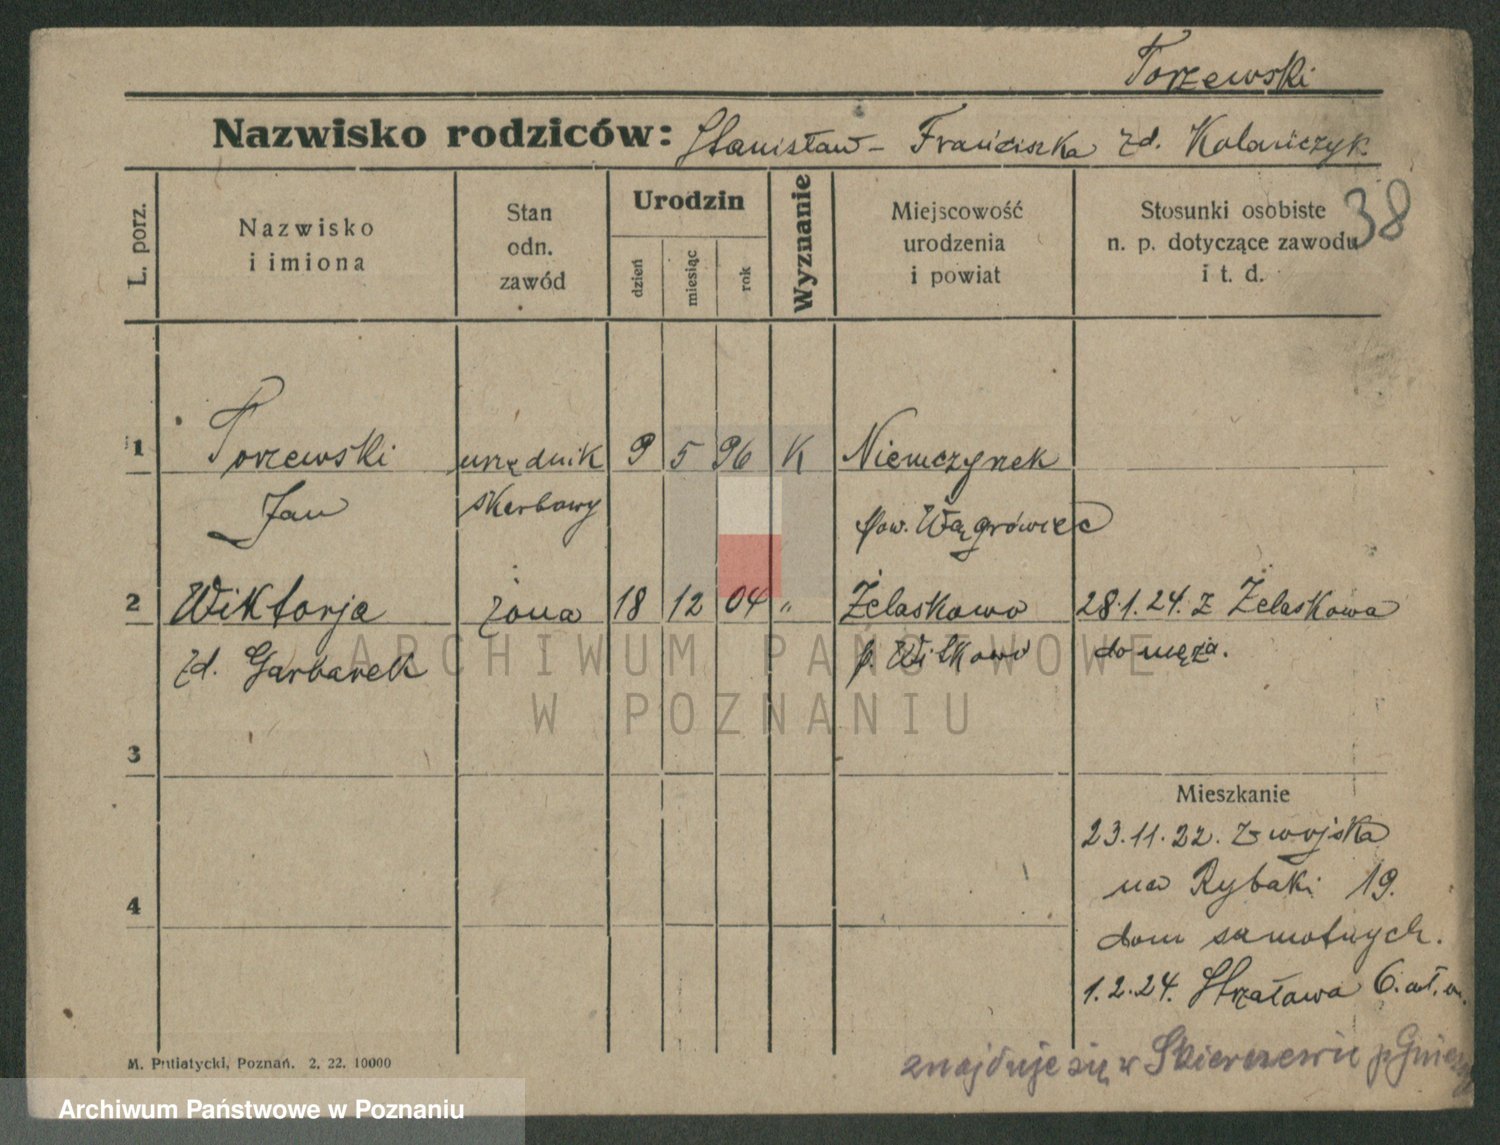 Torzewski
Nazwisko rodziców: Stanisław – Franciszka zd. Kolańczyk
38
L. porz.
Nazwisko
i imiona
Stan
odn.
zawód
Urodzin
dzień
miesiąc
rok
Wyznanie
Miejscowość
urodzenia
i powiat
Stosunki osobiste
n. p. dotyczące zawodu
i t. d.
1 Torzewski urzędnik 9 5 96 K Niemczynek
Jan skarbowy pow. Wągrówiec
2 Wiktorja żona 18 12 04 " Żelaskowo 28.1.24. z Żelaskowa
zd. Garbarek p. Witkowo do męża.
ARCHIWUM PAŃSTWOWE
W POZNANIU
3
Mieszkanie
23.11.22. z wojska
na Rybaki 19.
4
dom samotnych.
1.2.24. Strzałowa 6.
znajduje się w p Gniezn
M. Putiatycki, Poznań. 2. 22. 10000
Archiwum Państwowe w Poznaniu